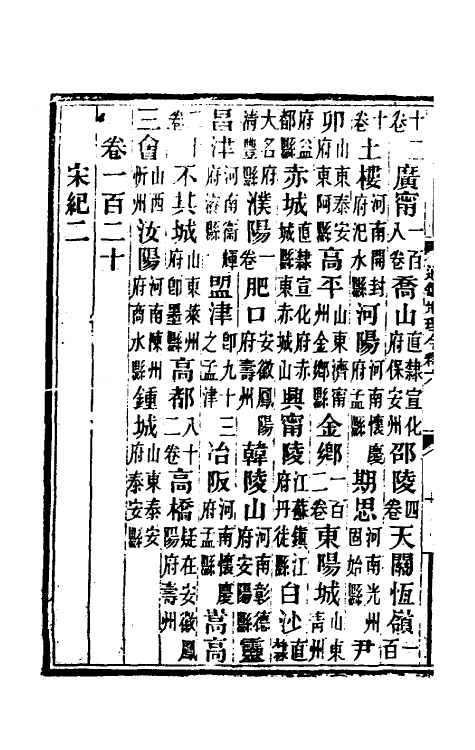 十二卷廣甯一百八卷喬山直隸宣化府保安州邵陵四卷天關恆嶺一百
十卷土樓河南開封府汜水縣河陽河南懷慶府孟縣期思河南光州固始縣尹
卯山東泰安府東阿縣高平山東濟甯州金鄉縣金鄉一百二卷東陽城山東青州
府益都縣赤城直隸宣化府赤城縣東赤城山興甯陵江蘇鎮江府丹徒縣白沙直隸
大名府清豐縣濮陽一卷肥口安徽鳳陽府壽州韓陵山河南彰德府安陽縣靈
昌津河南衛輝府滑縣盟津即九十三之孟津冶阪河南懷慶府孟縣嵩高
二十卷不其城山東萊州府卽墨縣高都八十二卷高橋疑在安徽鳳陽府壽州
三會山西忻州汝陽河南陳州府商水縣鍾城山東泰安府泰安縣
卷一百二十
宋紀二